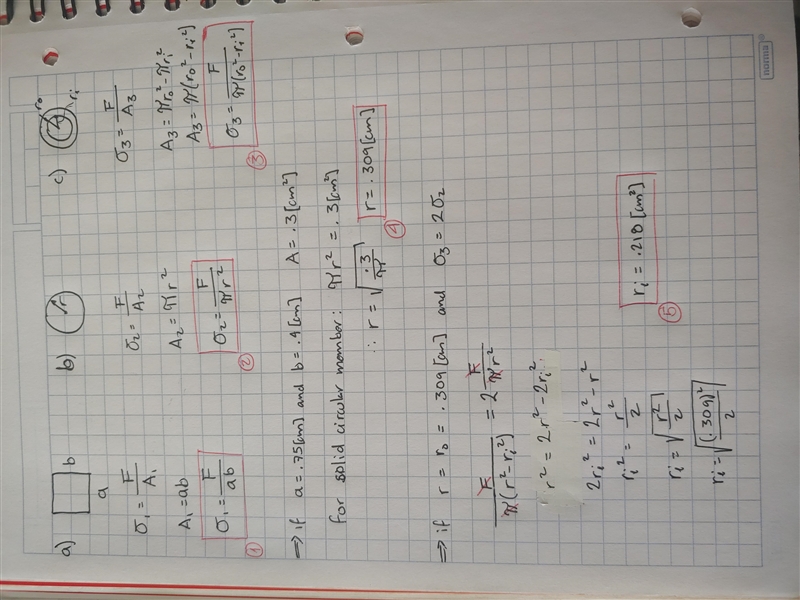 a) b a
σ₁ = F/A₁
A₁ = ab
σ₁ = F/ab
①
b) r
σ₂ = F/A₂
A₂ = πr²
σ₂ = F/πr²
②
c) r₀ rᵢ
σ₃ = F/A₃
A₃ = πr₀² - πrᵢ²
A₃ = π(r₀² - rᵢ²)
σ₃ = F/π(r₀² - rᵢ²)
③
⇒ if a = .75[cm] and b = .4[cm] A = .3[cm²]
for solid circular member: πr² = .3[cm²]
∴ r = √(.3/π) r = .309[cm]
④
⇒ if r = r₀ = .309[cm] and σ₃ = 2σ₂
F/π(r² - rᵢ²) = 2 F/πr²
r² = 2r² - 2rᵢ²
2rᵢ² = 2r² - r²
rᵢ² = r²/2
rᵢ = √(r²/2)
rᵢ = √((.309)²/2)
rᵢ = .218[cm²]
⑤
norma